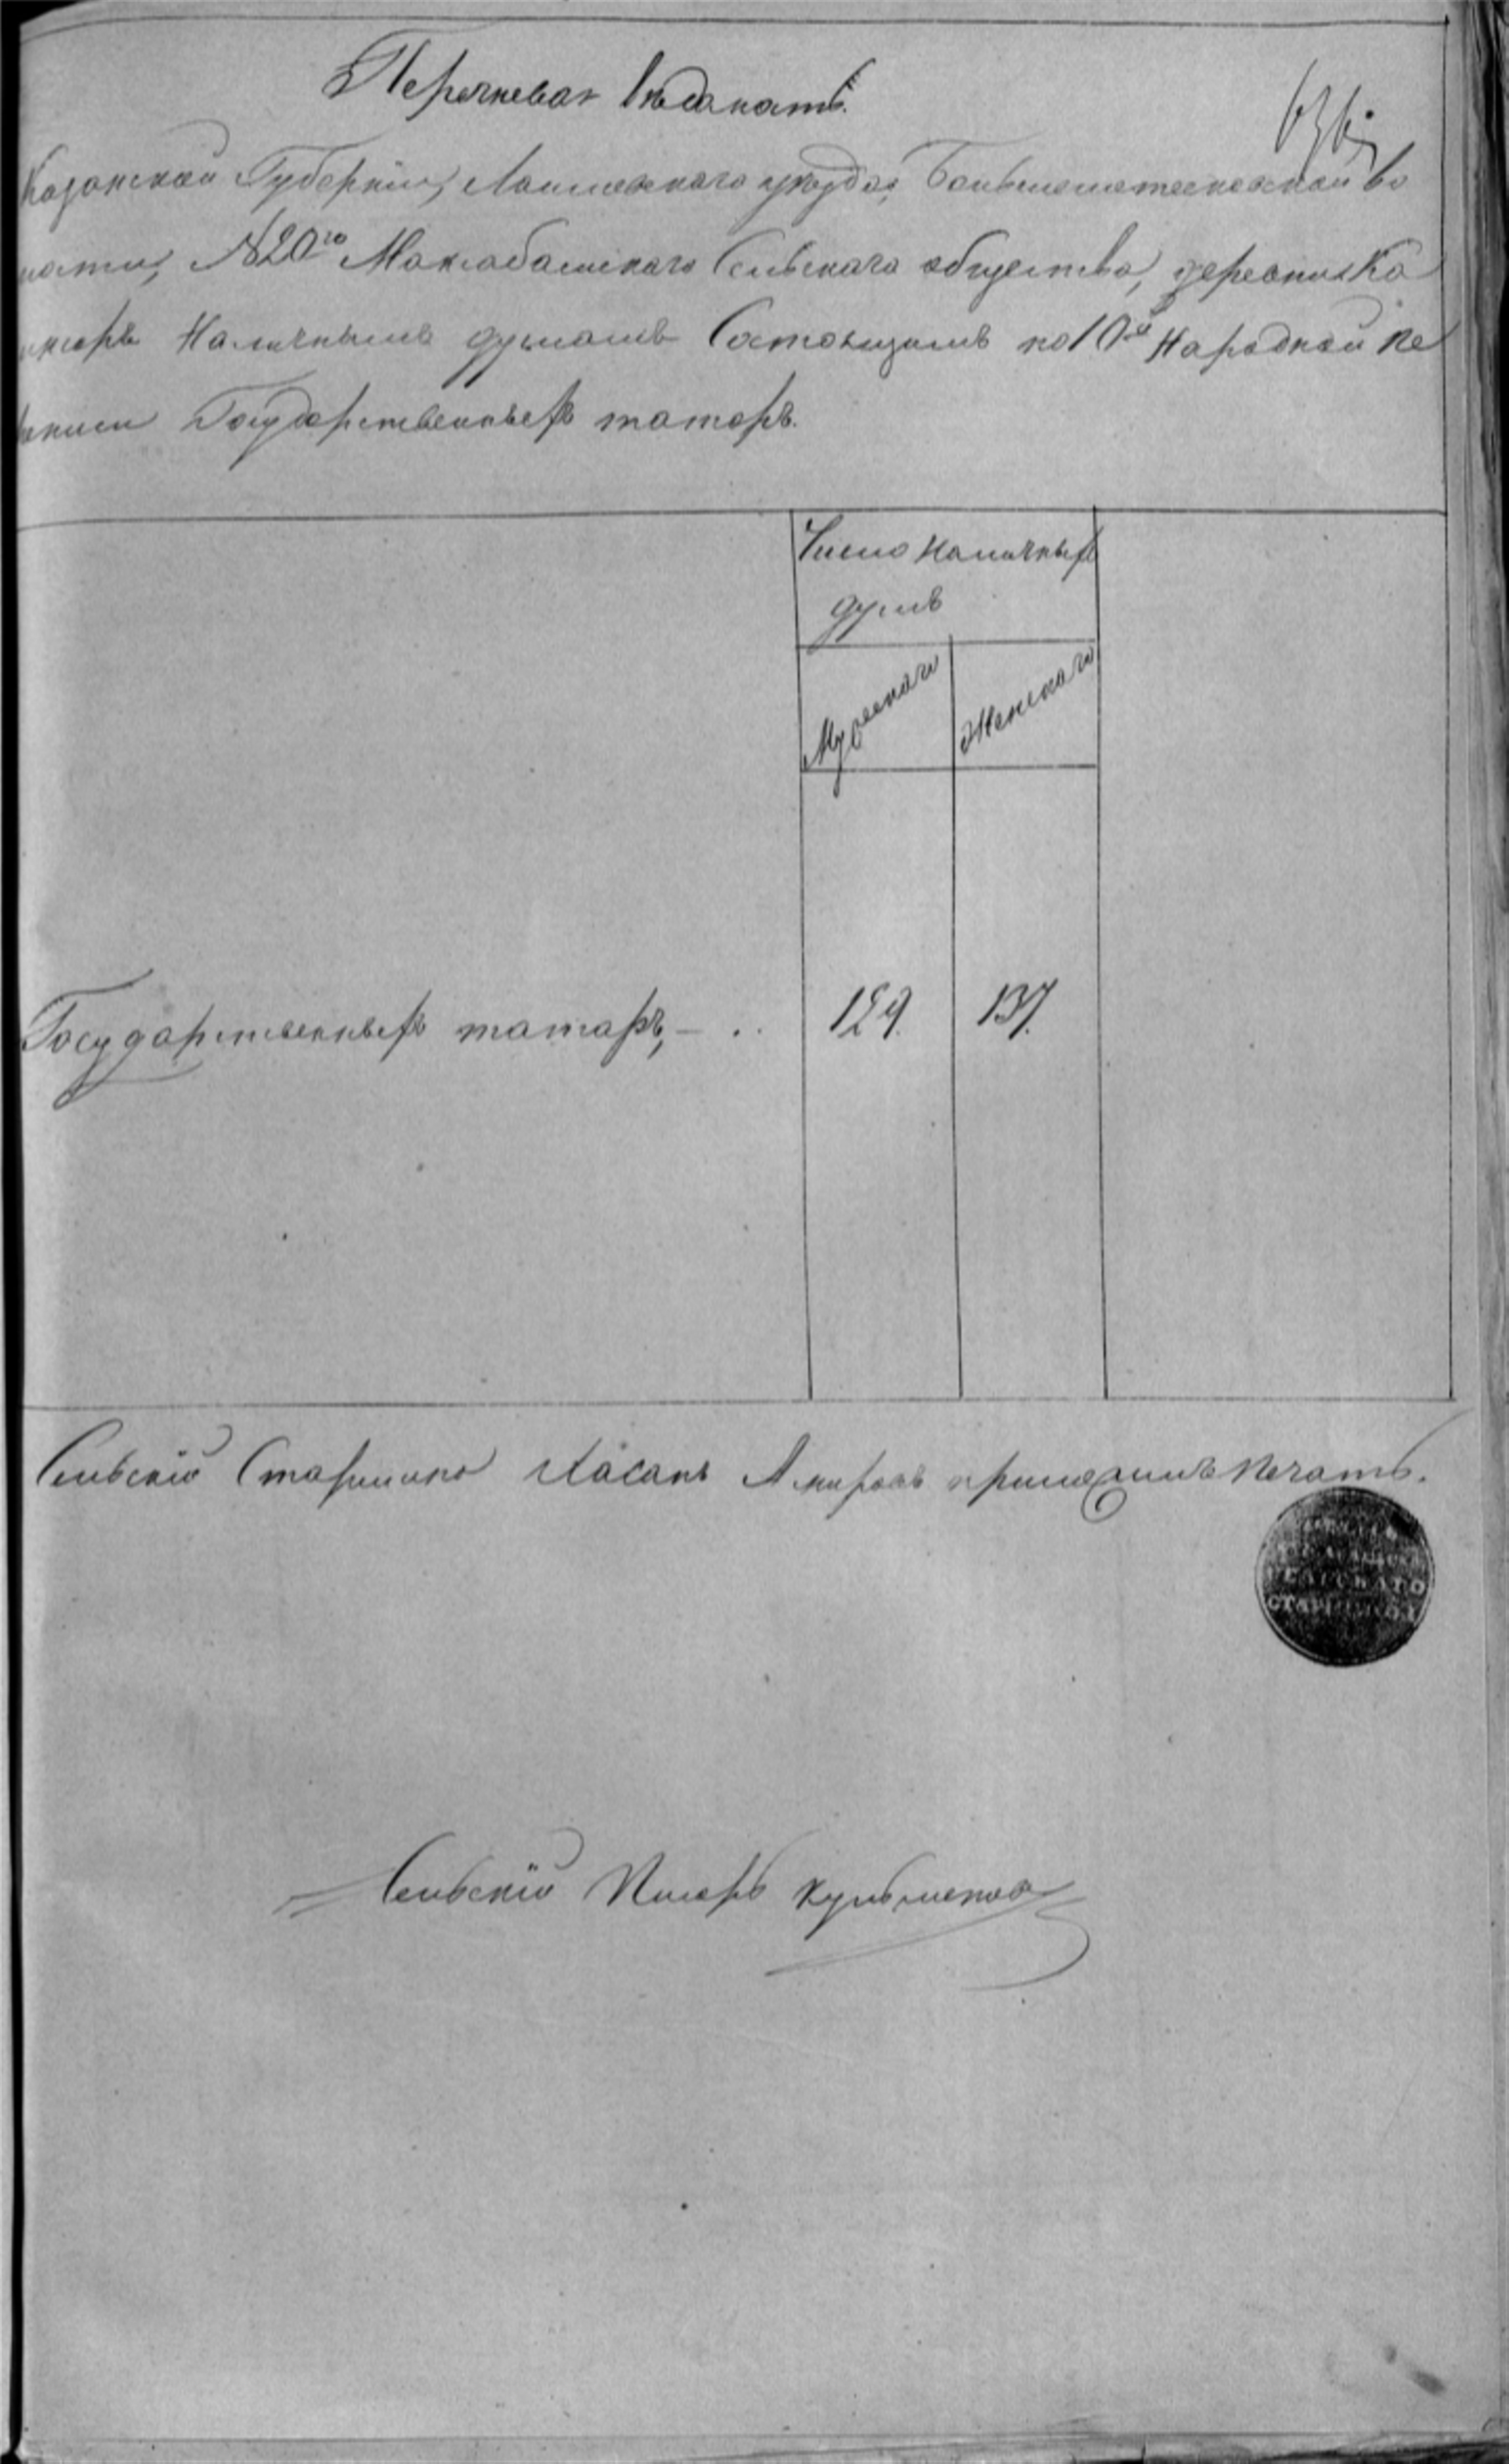 Перечневая Ведомость.
Казанской Губерніи, Лаишевскаго уѣзда, во
лости, №20го Сельскаго общества, деревни Ка
Наличнымъ душамъ Состоящимъ по 10й Народной пе
реписи Государственныхъ татаръ.
Число наличныхъ
душъ
Мужескаго Женскаго
Государственныхъ татаръ, — . . 129. 137.
Сельскій Старшина Хасанъ Амировъ приложилъ печать.
СЕЛЬСКАГО
СТАРШИНЫ
Сельскій Писарь